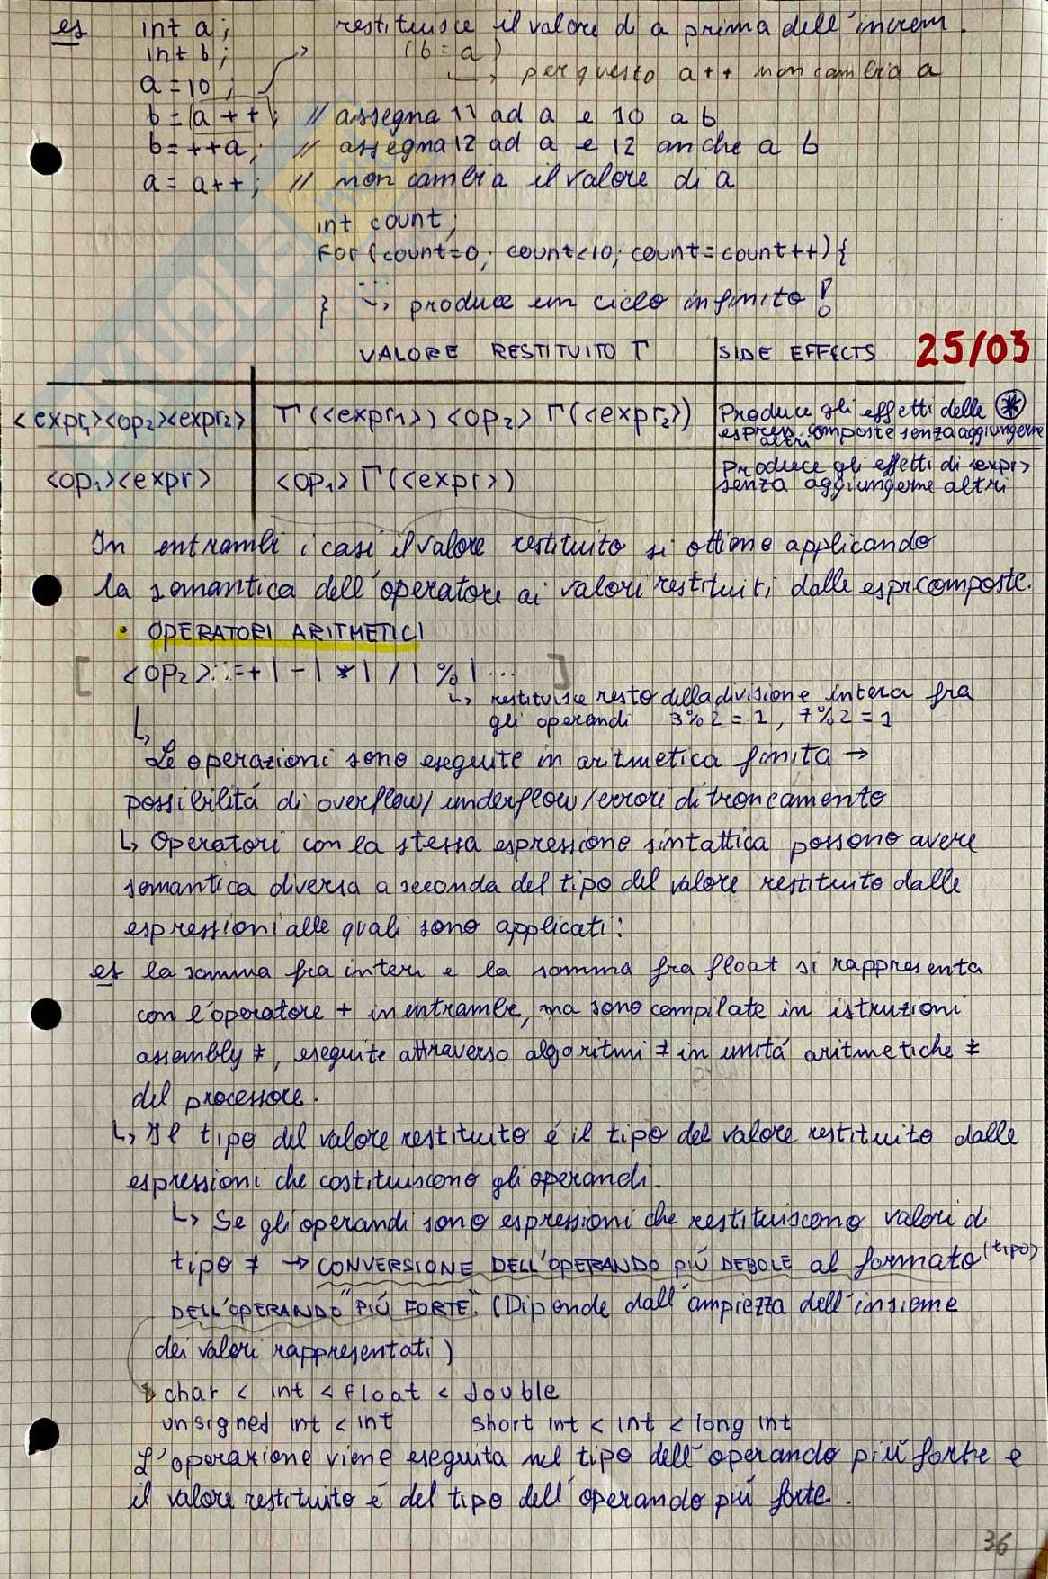 es int a; restituisce il valore di a prima dell'increm.
int b; (b = a)
a = 10; ↳ per questo a++ non cambia a
b = a++; // assegna 11 ad a e 10 a b
b = ++a; // assegna 12 ad a e 12 anche a b
a = a++; // non cambia il valore di a
int count;
for (count=0; count<10; count=count++) {
...
} ↳ produce un ciclo infinito!
VALORE RESTITUITO Γ SIDE EFFECTS 25/03
<expr₁><op₂><expr₂> Γ(<expr₁>) <op₂> Γ(<expr₂>) Produce gli effetti delle (*)
espress. composte senza aggiungerne
altri
<op₁><expr> <op₁> Γ(<expr>) Produce gli effetti di <expr>
senza aggiungerne altri
In entrambi i casi il valore restituito si ottiene applicando
la semantica dell'operatore ai valori restituiti dalle espr. composte.
• OPERATORI ARITMETICI
[ <op₂>::= + | - | * | / | % | ... ]
↳ restituisce resto della divisione intera fra
gli operandi 3%2 = 1, 7%2 = 1
↳
Le operazioni sono eseguite in aritmetica finita →
possibilitá di overflow/underflow/errore di troncamento
↳ Operatori con la stessa espressione sintattica possono avere
semantica diversa a seconda del tipo del valore restituito dalle
espressioni alle quali sono applicati:
es la somma fra interi e la somma fra float si rappresenta
con l'operatore + in entrambe, ma sono compilate in istruzioni
assembly ≠, eseguite attraverso algoritmi ≠ in unitá aritmetiche ≠
del processore.
↳ Il tipo del valore restituito é il tipo del valore restituito dalle
espressioni che costituiscono gli operandi.
↳ Se gli operandi sono espressioni che restituiscono valori di
tipo ≠ → CONVERSIONE DELL'OPERANDO PIÚ DEBOLE al formato (tipo)
DELL'OPERANDO "PIÚ FORTE". (Dipende dall'ampiezza dell'insieme
dei valori rappresentati)
char < int < float < double
unsigned int < int short int < int < long int
L'operazione viene eseguita nel tipo dell'operando piú forte e
il valore restituito é del tipo dell'operando piú forte.
36